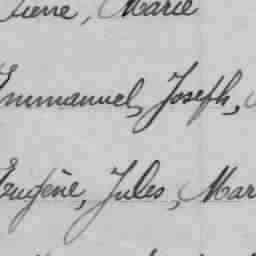 Pierre, Marie
Emmanuel, Joseph,
Eugène, Jules, Mar